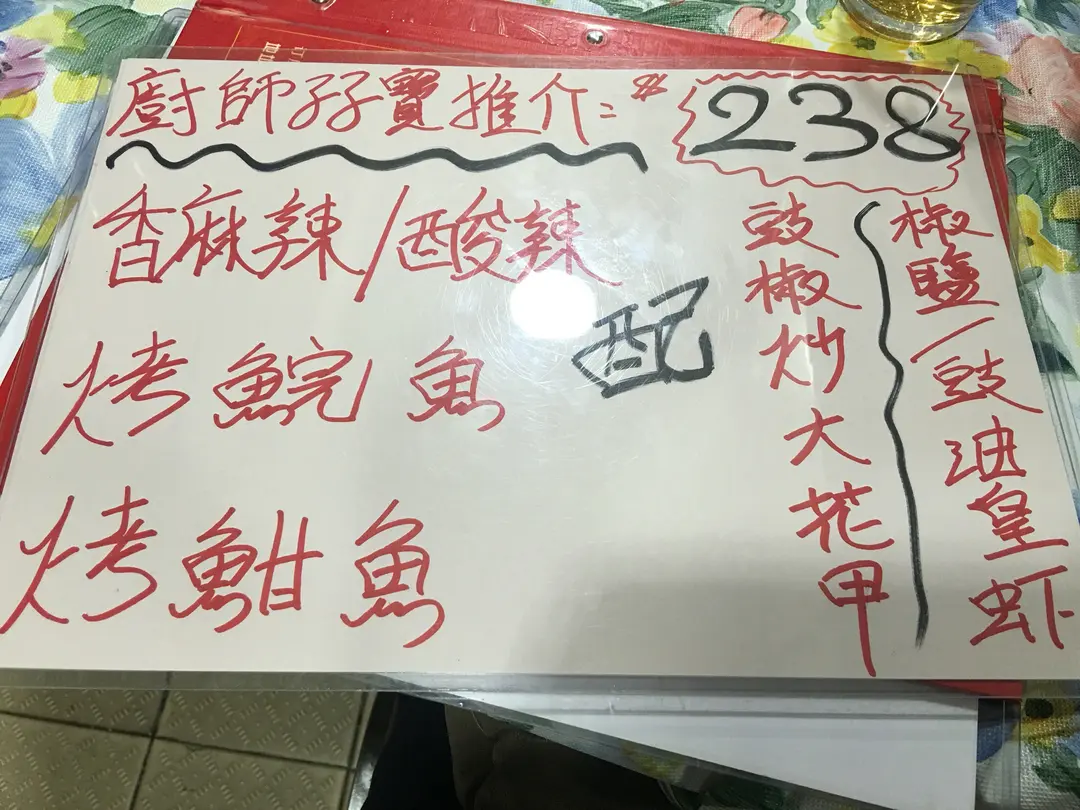 廚師孖寶推介: $238
香麻辣/酸辣
烤鯇魚
烤魽魚
配
豉椒炒大花甲
椒鹽/豉油皇虾